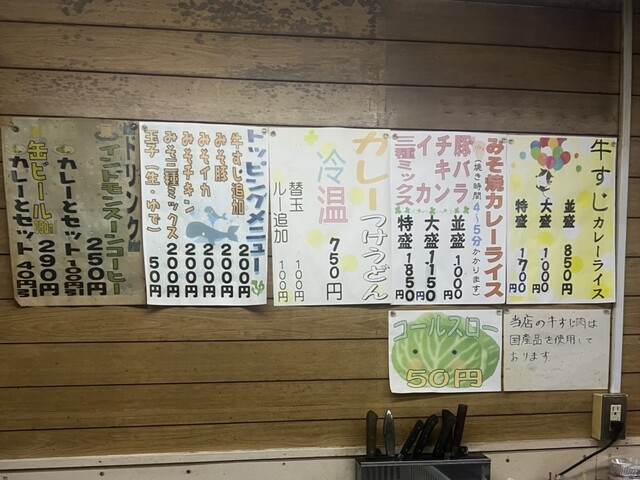 牛すじカレーライス
並盛 850円
大盛 1000円
特盛 1700円
みそ焼カレーライス
(焼き時間4〜5分かかります)
豚バラ
チキン
イカ
三種ミックス
並盛 1000円
大盛 1150円
特盛 1850円
カレーつけうどん
冷 温 750円
替玉 100円
ルー追加 100円
トッピングメニュー
牛すじ追加 200円
みそ豚 200円
みそイカ 200円
みそチキン 200円
みそ三種ミックス 200円
玉子(生・ゆで) 50円
ドリンク
インドモンスーンコーヒー
250円
カレーとセット 100円引
缶ビール 290円
カレーとセット 40円引
コールスロー
50円
当店の牛すじ肉は
国産品を使用して
おります